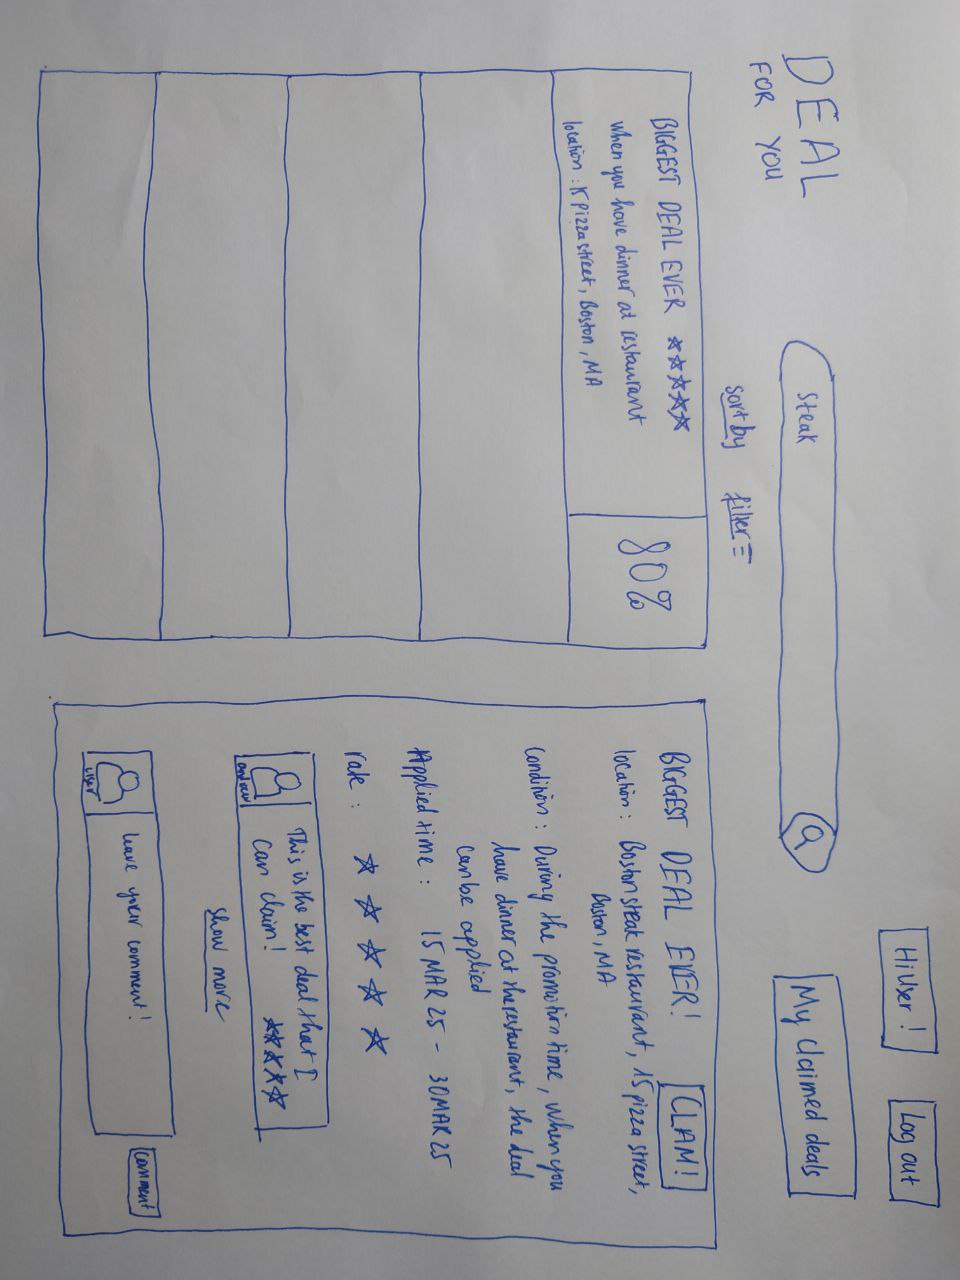 Hi User !
Log out
DEAL
FOR YOU
Steak
My Claimed deals
sort by
filter
BIGGEST DEAL EVER
80%
when you have dinner at restaurant
location : 15 Pizza street, Boston, MA
BIGGEST DEAL EVER!
CLAM!
location : Boston steak restaurant, 15 pizza street,
Boston, MA
Condition : During the promotion time, when you
have dinner at the restaurant, the deal
can be applied
Applied time : 15 MAR 25 - 30 MAR 25
rate :
This is the best deal that I
can claim!
andrew
show more
leave your comment!
user
comment